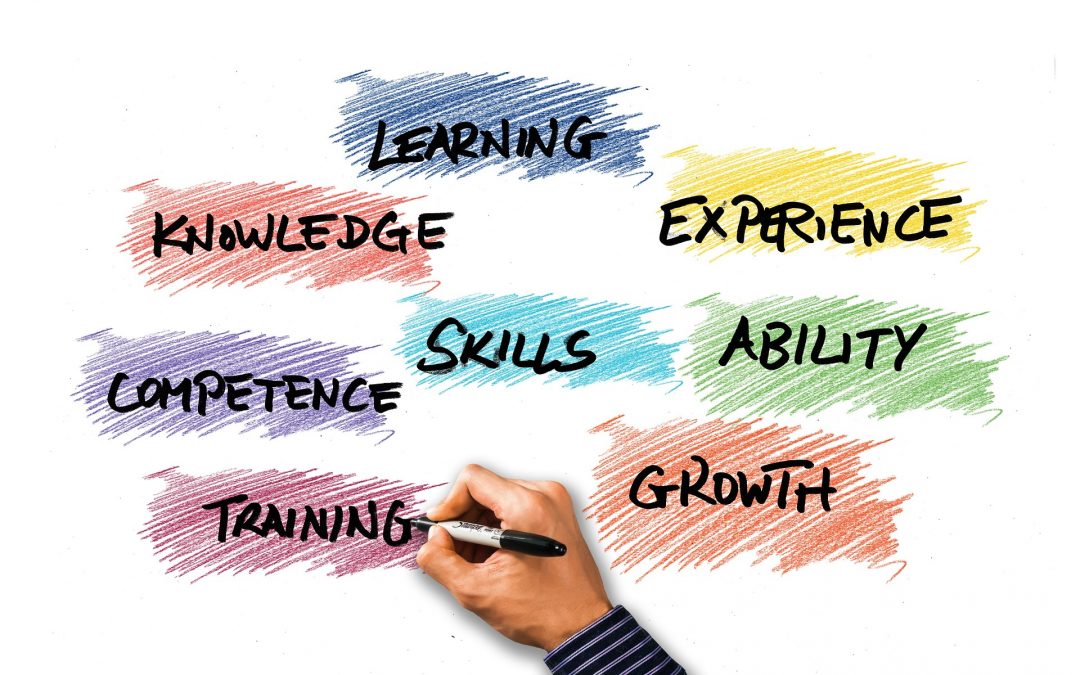 LEARNING
KNOWLEDGE
EXPERIENCE
SKILLS
ABILITY
COMPETENCE
GROWTH
TRAINING
Sharpie